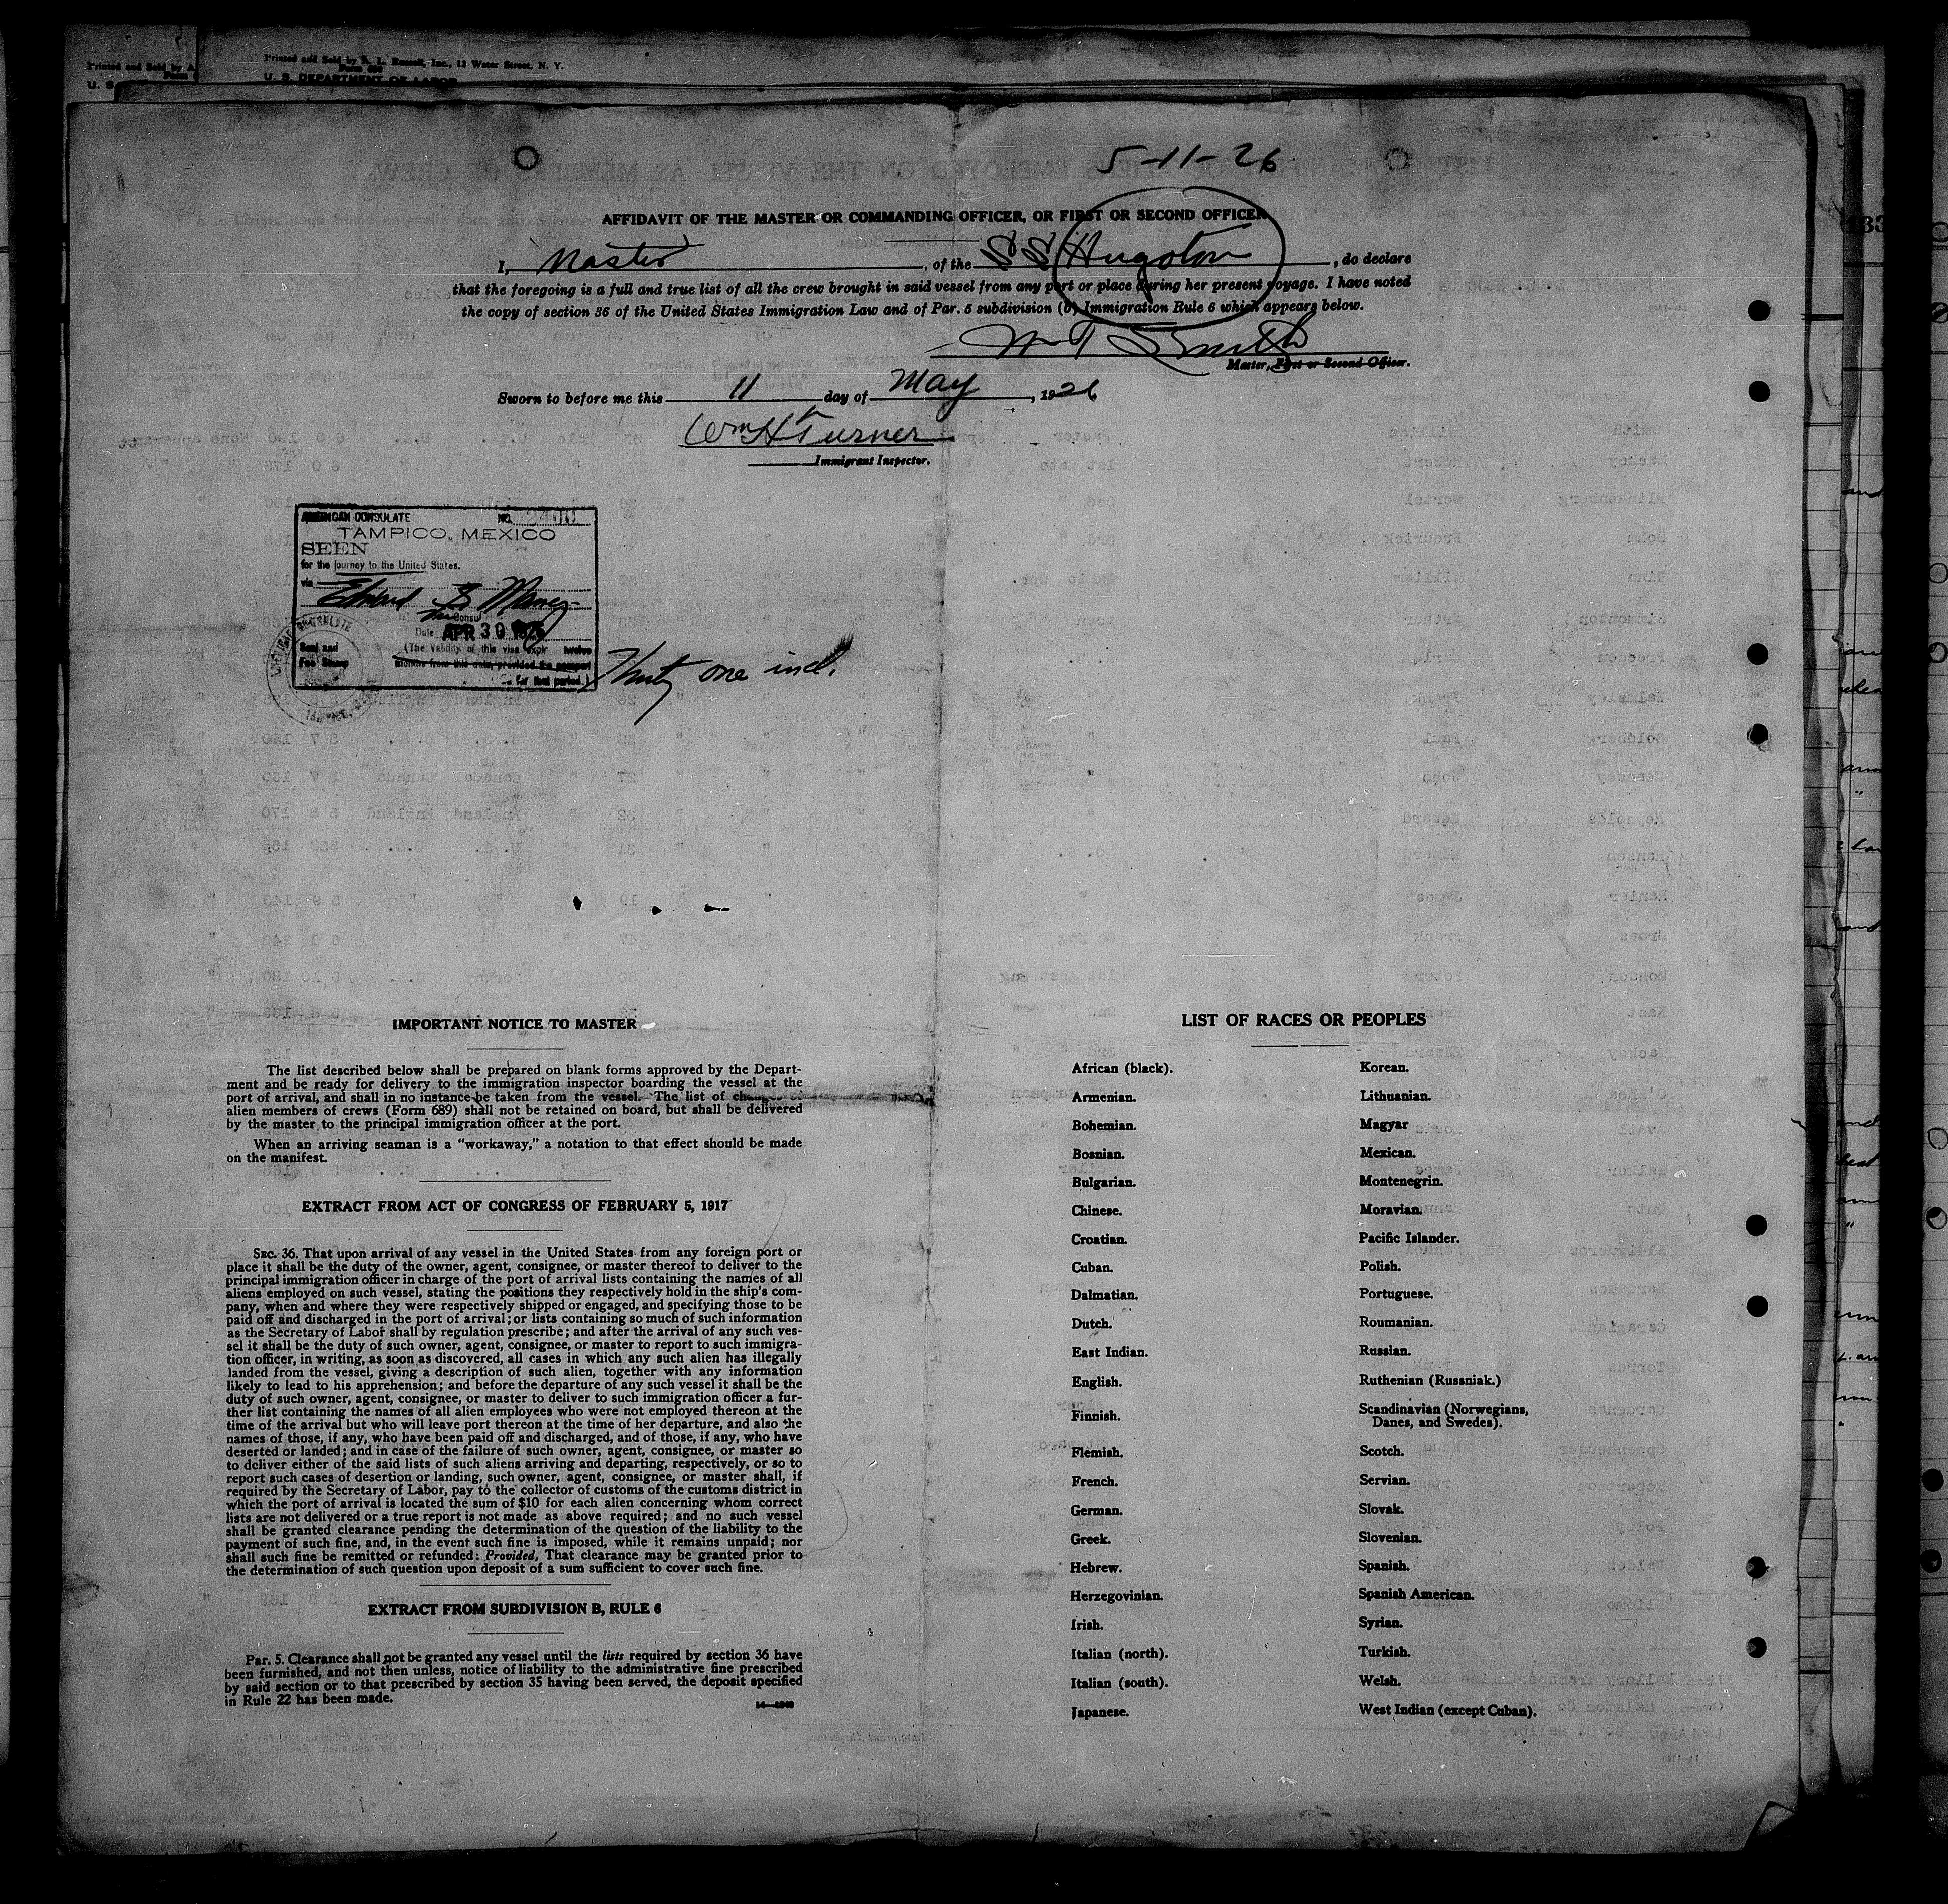 Printed and Sold by R. L. Russell, Inc., 12 Water Street, N. Y.
U. S. DEPARTMENT OF LABOR
5-11-26
AFFIDAVIT OF THE MASTER OR COMMANDING OFFICER, OR FIRST OR SECOND OFFICER
I, Master, of the SS Hugoton, do declare
that the foregoing is a full and true list of all the crew brought in said vessel from any port or place during her present voyage. I have noted
the copy of section 36 of the United States Immigration Law and of Par. 5 subdivision (b) Immigration Rule 6 which appears below.
Smith
Master, First or Second Officer.
Sworn to before me this 11 day of May, 1926
Wm H Turner
Immigrant Inspector.
AMERICAN CONSULATE NO. 2400
TAMPICO, MEXICO
SEEN
for the journey to the United States.
via
Consul
Date APR 30 1926
(The validity of this visa expir twelve
months from this date, provided the passport
for that period.)
Seal and
Fee Stamp
Thirty one incl.
IMPORTANT NOTICE TO MASTER
The list described below shall be prepared on blank forms approved by the Depart-
ment and be ready for delivery to the immigration inspector boarding the vessel at the
port of arrival, and shall in no instance be taken from the vessel. The list of changes of
alien members of crews (Form 689) shall not be retained on board, but shall be delivered
by the master to the principal immigration officer at the port.
When an arriving seaman is a "workaway," a notation to that effect should be made
on the manifest.
EXTRACT FROM ACT OF CONGRESS OF FEBRUARY 5, 1917
SEC. 36. That upon arrival of any vessel in the United States from any foreign port or
place it shall be the duty of the owner, agent, consignee, or master thereof to deliver to the
principal immigration officer in charge of the port of arrival lists containing the names of all
aliens employed on such vessel, stating the positions they respectively hold in the ship's com-
pany, when and where they were respectively shipped or engaged, and specifying those to be
paid off and discharged in the port of arrival; or lists containing so much of such information
as the Secretary of Labor shall by regulation prescribe; and after the arrival of any such ves-
sel it shall be the duty of such owner, agent, consignee, or master to report to such immigra-
tion officer, in writing, as soon as discovered, all cases in which any such alien has illegally
landed from the vessel, giving a description of such alien, together with any information
likely to lead to his apprehension; and before the departure of any such vessel it shall be the
duty of such owner, agent, consignee, or master to deliver to such immigration officer a fur-
ther list containing the names of all alien employees who were not employed thereon at the
time of the arrival but who will leave port thereon at the time of her departure, and also the
names of those, if any, who have been paid off and discharged, and of those, if any, who have
deserted or landed; and in case of the failure of such owner, agent, consignee, or master so
to deliver either of the said lists of such aliens arriving and departing, respectively, or so to
report such cases of desertion or landing, such owner, agent, consignee, or master shall, if
required by the Secretary of Labor, pay to the collector of customs of the customs district in
which the port of arrival is located the sum of $10 for each alien concerning whom correct
lists are not delivered or a true report is not made as above required; and no such vessel
shall be granted clearance pending the determination of the question of the liability to the
payment of such fine, and, in the event such fine is imposed, while it remains unpaid; nor
shall such fine be remitted or refunded: Provided, That clearance may be granted prior to
the determination of such question upon deposit of a sum sufficient to cover such fine.
EXTRACT FROM SUBDIVISION B, RULE 6
Par. 5. Clearance shall not be granted any vessel until the lists required by section 36 have
been furnished, and not then unless, notice of liability to the administrative fine prescribed
by said section or to that prescribed by section 35 having been served, the deposit specified
in Rule 22 has been made.
LIST OF RACES OR PEOPLES
African (black).
Armenian.
Bohemian.
Bosnian.
Bulgarian.
Chinese.
Croatian.
Cuban.
Dalmatian.
Dutch.
East Indian.
English.
Finnish.
Flemish.
French.
German.
Greek.
Hebrew.
Herzegovinian.
Irish.
Italian (north).
Italian (south).
Japanese.
Korean.
Lithuanian.
Magyar
Mexican.
Montenegrin.
Moravian.
Pacific Islander.
Polish.
Portuguese.
Roumanian.
Russian.
Ruthenian (Russniak.)
Scandinavian (Norwegians,
Danes, and Swedes).
Scotch.
Servian.
Slovak.
Slovenian.
Spanish.
Spanish American.
Syrian.
Turkish.
Welsh.
West Indian (except Cuban).